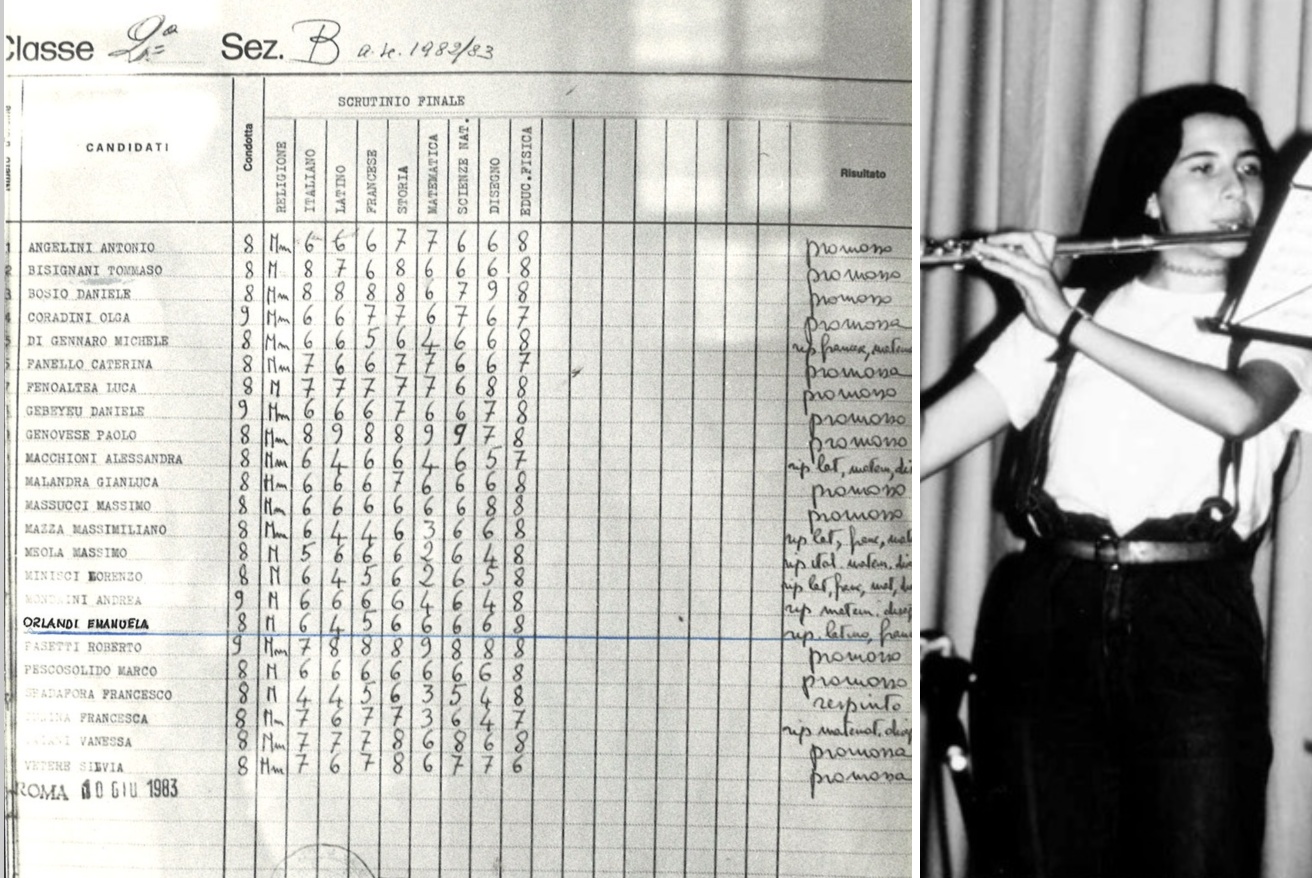 Classe 2ª Sez. B a.s. 1982/83
SCRUTINIO FINALE
CANDIDATI Condotta RELIGIONE ITALIANO LATINO FRANCESE STORIA MATEMATICA SCIENZE NAT. DISEGNO EDUC.FISICA Risultato
1 ANGELINI ANTONIO 8 Mm 6 6 6 7 7 6 6 8 promosso
2 BISIGNANI TOMMASO 8 M 8 7 6 8 6 6 6 8 promosso
3 BOSIO DANIELE 8 Mm 8 8 8 8 6 7 9 8 promosso
CORADINI OLGA 9 Mm 6 6 7 7 6 7 6 7 promossa
DI GENNARO MICHELE 8 Mm 6 6 5 6 4 6 6 8 rip
FANELLO CATERINA 8 Mm 7 6 6 7 7 6 6 7 promossa
FENOALTEA LUCA 8 M 7 7 7 7 7 6 8 8 promosso
GEBEYEU DANIELE 9 Mm 6 6 6 7 6 6 7 8 promosso
GENOVESE PAOLO 8 Mm 8 9 8 8 9 9 7 8 promosso
MACCHIONI ALESSANDRA 8 Mm 6 4 6 6 4 6 5 7 rip lat, matem, di
MALANDRA GIANLUCA 8 Mm 6 6 6 7 6 6 6 8 promosso
MASSUCCI MASSIMO 8 Mm 6 6 6 6 6 6 8 8 promosso
MAZZA MASSIMILIANO 8 Mm 6 4 4 6 3 6 6 8 rip lat, franc, mat
MEOLA MASSIMO 8 M 5 6 6 6 2 6 4 8 rip ital. matem. di
MINISCI LORENZO 8 M 6 4 5 6 2 6 5 8 rip lat, franc, mat, di
MONDAINI ANDREA 9 M 6 6 6 6 4 6 4 8 rip matem. diseg
ORLANDI EMANUELA 8 M 6 4 5 6 6 6 6 8 rip. latino, fran
PASETTI ROBERTO 9 Mm 7 8 8 8 9 8 8 8 promosso
PESCOSOLIDO MARCO 8 M 6 6 6 6 6 6 6 8 promosso
SPADAFORA FRANCESCO 8 M 4 4 5 6 3 5 4 8 respinto
FRANCESCA 8 Mm 7 6 7 7 3 6 4 7 rip matemat. diseg
VANESSA 8 Mm 7 7 7 8 6 8 6 8 promossa
VETERE SILVIA 8 Mm 7 6 7 8 6 7 7 6 promossa
ROMA 10 GIU 1983